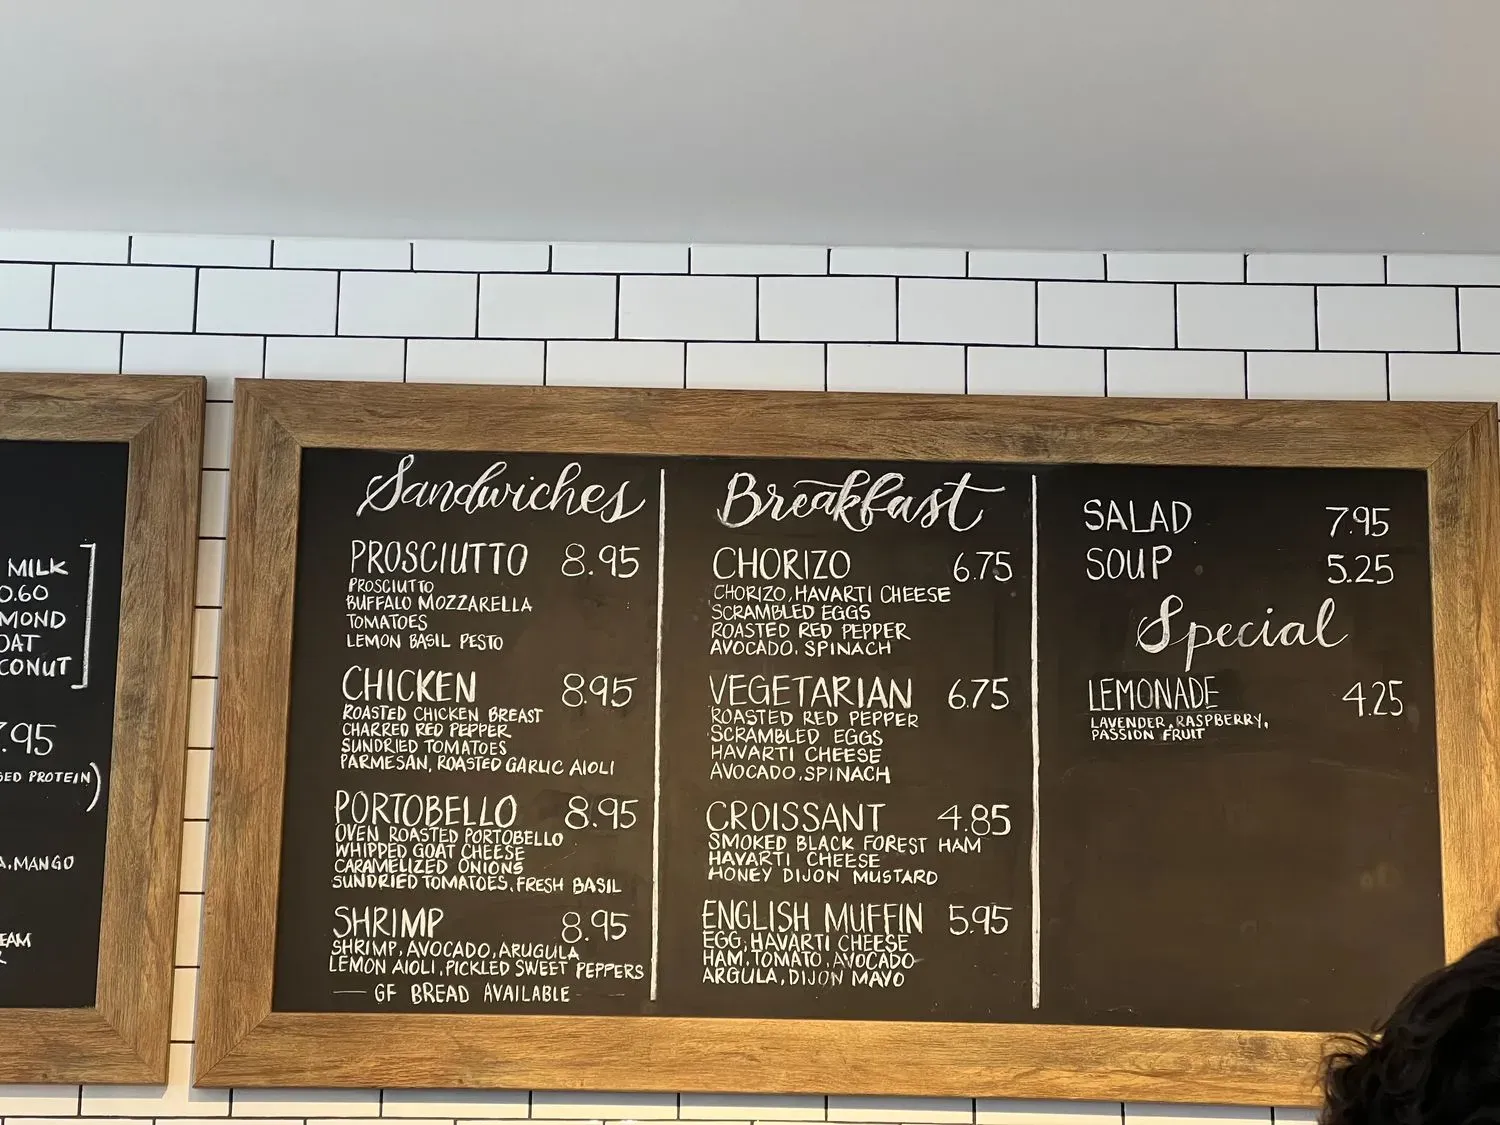 MILK
0.60
OAT
7.95
PROTEIN)
MANGO
Sandwiches
PROSCIUTTO 8.95
PROSCIUTTO
BUFFALO MOZZARELLA
TOMATOES
LEMON BASIL PESTO
CHICKEN 8.95
ROASTED CHICKEN BREAST
CHARRED RED PEPPER
SUNDRIED TOMATOES
PARMESAN, ROASTED GARLIC AIOLI
PORTOBELLO 8.95
OVEN ROASTED PORTOBELLO
WHIPPED GOAT CHEESE
CARAMELIZED ONIONS
SUNDRIED TOMATOES, FRESH BASIL
SHRIMP 8.95
SHRIMP, AVOCADO, ARUGULA
LEMON AIOLI, PICKLED SWEET PEPPERS
— GF BREAD AVAILABLE —
Breakfast
CHORIZO 6.75
CHORIZO, HAVARTI CHEESE
SCRAMBLED EGGS
ROASTED RED PEPPER
AVOCADO, SPINACH
VEGETARIAN 6.75
ROASTED RED PEPPER
SCRAMBLED EGGS
HAVARTI CHEESE
AVOCADO, SPINACH
CROISSANT 4.85
SMOKED BLACK FOREST HAM
HAVARTI CHEESE
HONEY DIJON MUSTARD
ENGLISH MUFFIN 5.95
EGG, HAVARTI CHEESE
HAM, TOMATO, AVOCADO
ARGULA, DIJON MAYO
SALAD 7.95
SOUP 5.25
Special
LEMONADE 4.25
LAVENDER, RASPBERRY,
PASSION FRUIT